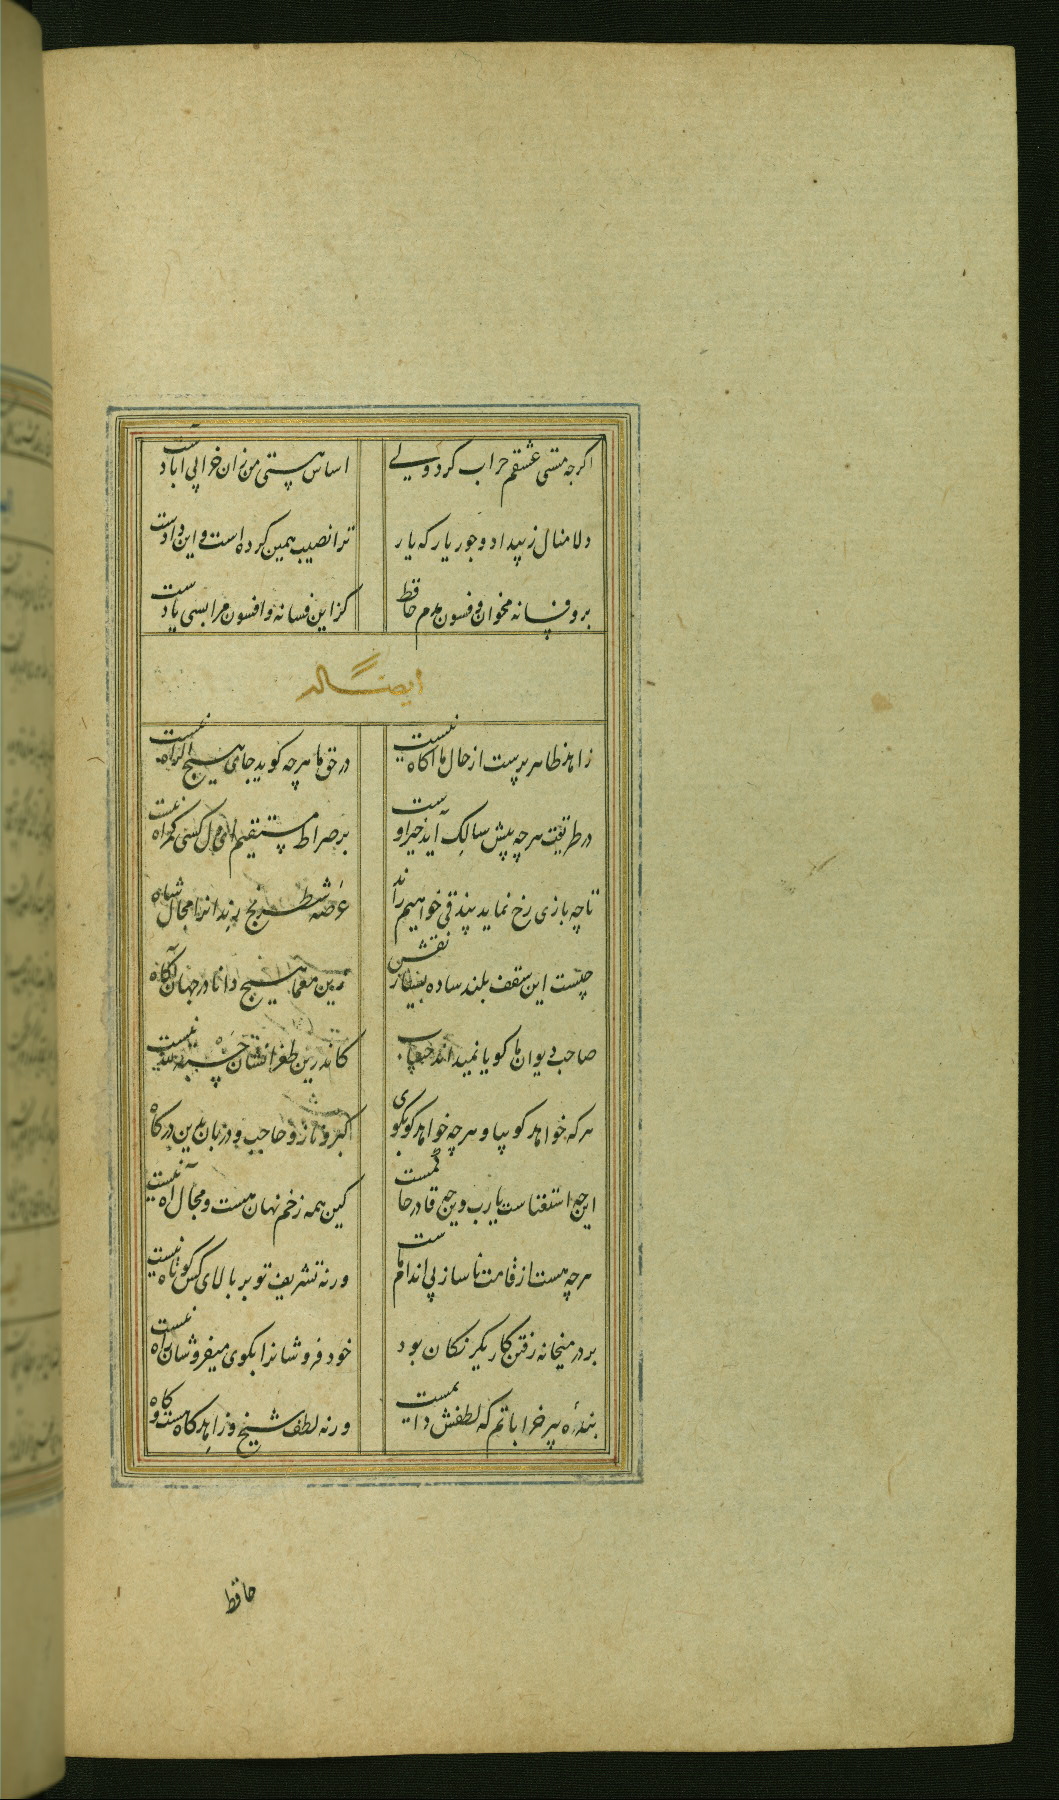 اکرچه مستی عشقم خراب کرد ولی اساس هستی من زان خرابی آبادست
دلا منال ز بیداد و جور یار که یار ترا نصیب همین کرده است و این دادست
برو فسانه مخوان و فسون مدم حافظ کزین فسانه و افسون مرا بسی یادست
ایضا له
زاهد ظاهر پرست از حال ما آکاه نیست در حق ما هرچه کوید جای هیچ اکراه نیست
در طریقت هرچه پیش سالک آید خیر اوست بر صراط مستقیم ای دل کسی کمراه نیست
تا چه بازی رخ نماید بیدقی خواهیم راند عرصه شطرنج رندانرا مجال شاه
چیست این سقف بلند ساده بسیار نقش زین معما هیچ دانا در جهان آکاه
صاحب دیوان ما کویا نمیداند حساب کاندرین طغرا نشان حسبة لله نیست
هرکه خواهد کو بیا و هرچه خواهد کو بکوی کبر و ناز و حاجب و دربان بدین درکاه
این چه استغناست یارب وین چه قادر حاکمست کین همه زخم نهان هست و مجال آه نیست
هرچه هست از قامت ناساز بی اندام ماست ورنه تشریف تو بر بالای کس کوتاه نیست
بر در میخانه رفتن کار یکرنکان بود خود فروشانرا بکوی میفروشان راه نیست
بنده پیر خراباتم که لطفش دایمست ورنه لطف شیخ و زاهد کاه هست و کاه
حافظ